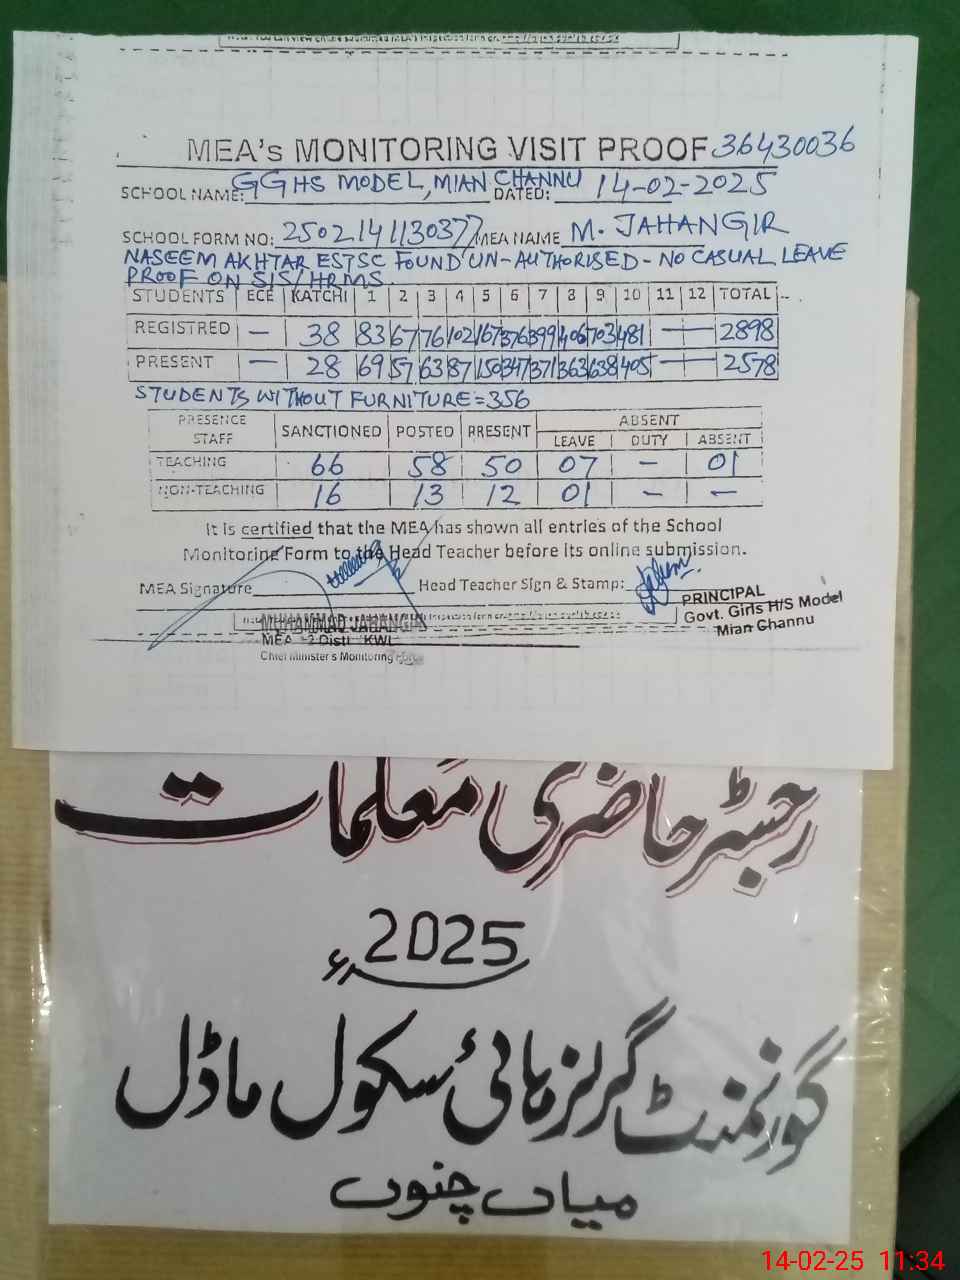 MEA's MONITORING VISIT PROOF 36430036
SCHOOL NAME: GGHS MODEL, MIAN CHANNU DATED: 14-02-2025
SCHOOL FORM NO: 2502141130377 MEA NAME M. JAHANGIR
NASEEM AKHTAR ESTSC FOUND UN-AUTHORISED - NO CASUAL LEAVE
PROOF ON SIS/HRMS.
STUDENTS ECE KATCHI 1 2 3 4 5 6 7 8 9 10 11 12 TOTAL
REGISTRED — 38 83 67 76 102 167 376 399 406 703 481 — 2898
PRESENT — 28 69 57 63 87 150 347 371 363 638 405 — 2578
STUDENTS WITHOUT FURNITURE = 356
PRESENCE STAFF SANCTIONED POSTED PRESENT ABSENT
LEAVE DUTY ABSENT
TEACHING 66 58 50 07 - 01
NON-TEACHING 16 13 12 01 - -
It is certified that the MEA has shown all entries of the School
Monitoring Form to the Head Teacher before its online submission.
MEA Signature Head Teacher Sign & Stamp:
PRINCIPAL
Govt. Girls H/S Model
Mian Channu
MUHAMMAD JAHANGIR
MEA Distt KWL
Chief Minister's Monitoring Force
رجسٹر حاضری معلمات
2025ء
گورنمنٹ گرلز ہائی سکول ماڈل
میاں چنوں
14-02-25 11:34